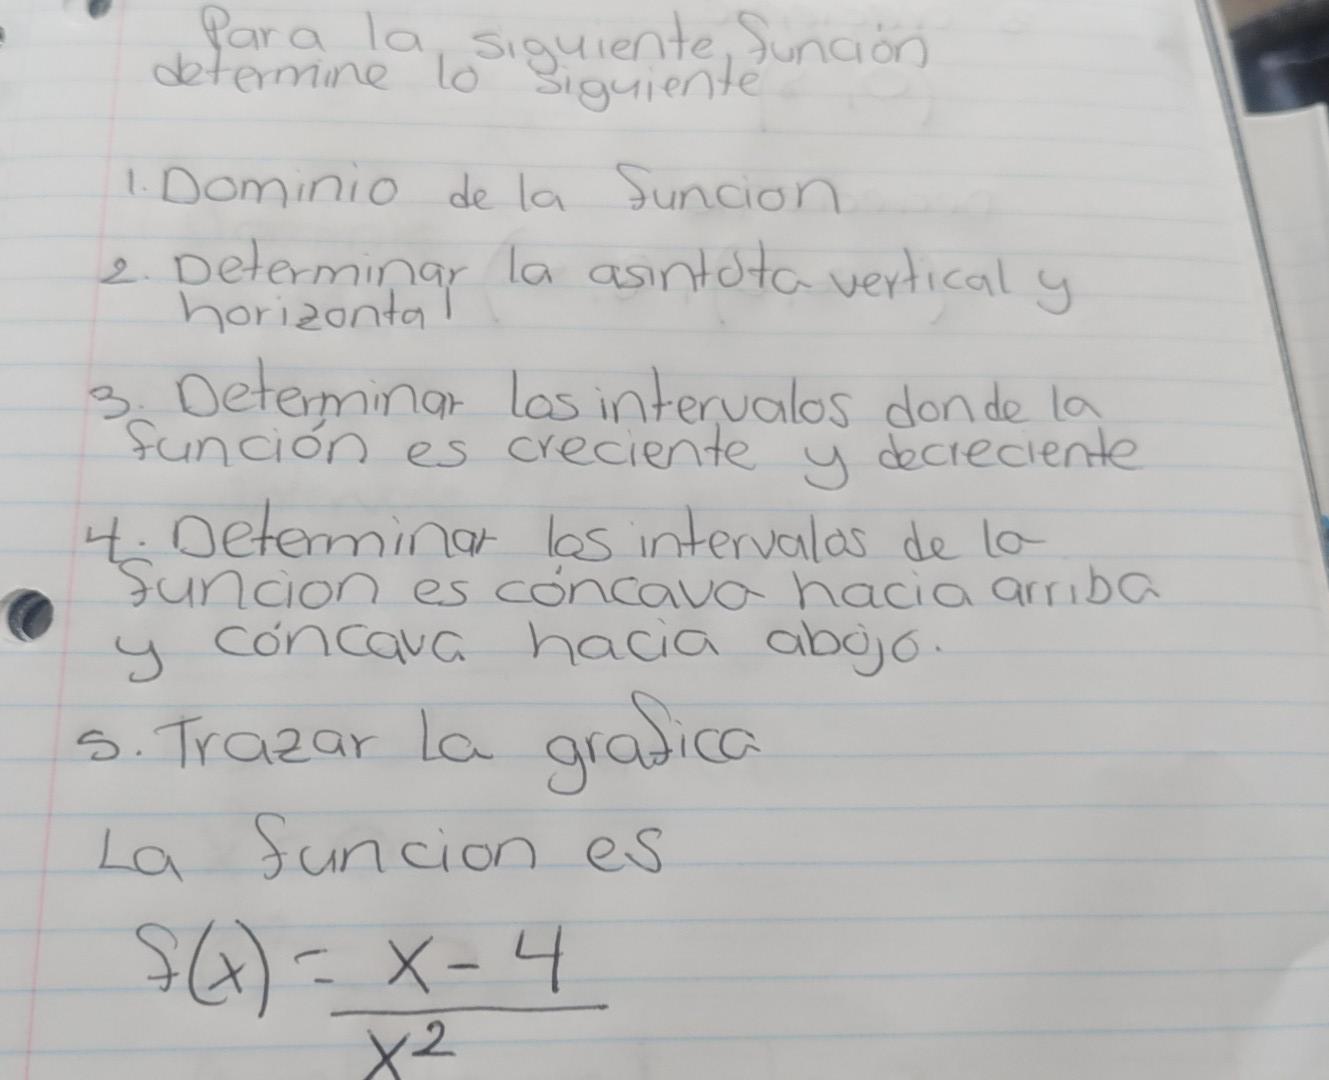 Para la siguiente función
determine lo siguiente
1. Dominio de la funcion
2. Determinar la asintota vertical y
horizontal
3. Determinar los intervalos donde la
función es creciente y decreciente
4. Determinar los intervalos de la
funcion es cóncava hacia arriba
y cóncava hacia abajo.
5. Trazar la grafica
La funcion es
f(x) = x - 4
x²